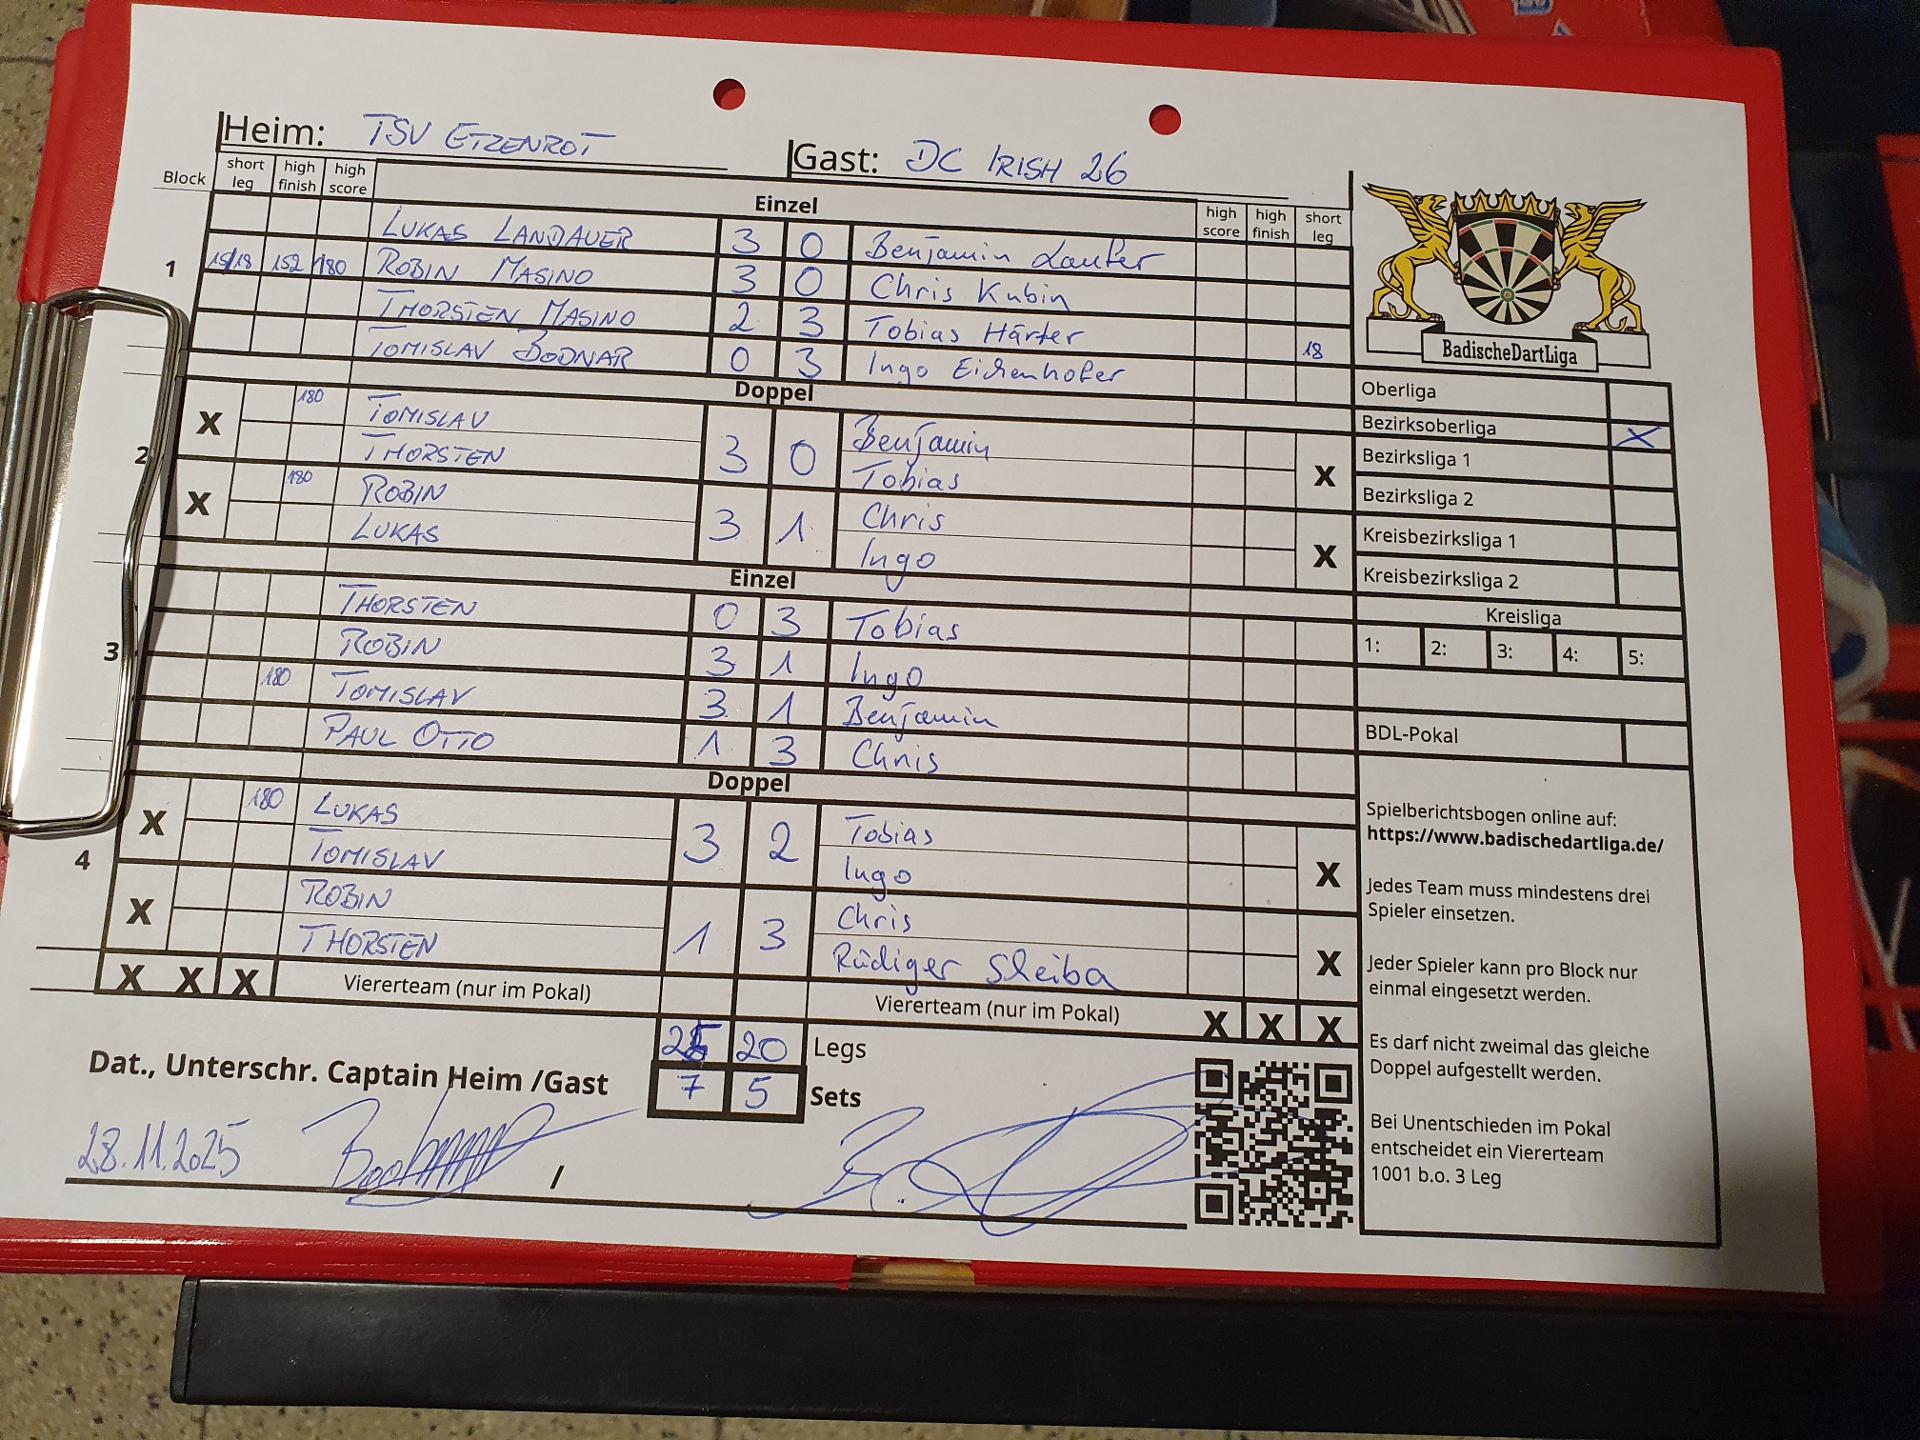 Heim: TSV ETZENROT
Gast: DC IRISH 26
Block short leg high finish high score
Einzel
high score high finish short leg
1
LUKAS LANDAUER 3 0 Benjamin Laufer
15/18 152 180 ROBIN MASINO 3 0 Chris Kubin
THORSTEN MASINO 2 3 Tobias Härter 18
TOMISLAV BODNAR 0 3 Ingo Eichenhofer
Doppel
2
X 180 TOMISLAV 3 0 Benjamin X
THORSTEN Tobias
X 180 ROBIN 3 1 Chris X
LUKAS Ingo
Einzel
3
THORSTEN 0 3 Tobias
ROBIN 3 1 Ingo
180 TOMISLAV 3 1 Benjamin
PAUL OTTO 1 3 Chris
Doppel
4
X 180 LUKAS 3 2 Tobias X
TOMISLAV Ingo
X ROBIN 1 3 Chris X
THORSTEN Rüdiger Skiba
X X X Viererteam (nur im Pokal) Viererteam (nur im Pokal) X X X
20 Legs
7 5 Sets
Dat., Unterschr. Captain Heim /Gast
28.11.2025 /
BadischeDartLiga
Oberliga
Bezirksoberliga X
Bezirksliga 1
Bezirksliga 2
Kreisbezirksliga 1
Kreisbezirksliga 2
Kreisliga
1: 2: 3: 4: 5:
BDL-Pokal
Spielberichtsbogen online auf:
https://www.badischedartliga.de/
Jedes Team muss mindestens drei
Spieler einsetzen.
Jeder Spieler kann pro Block nur
einmal eingesetzt werden.
Es darf nicht zweimal das gleiche
Doppel aufgestellt werden.
Bei Unentschieden im Pokal
entscheidet ein Viererteam
1001 b.o. 3 Leg